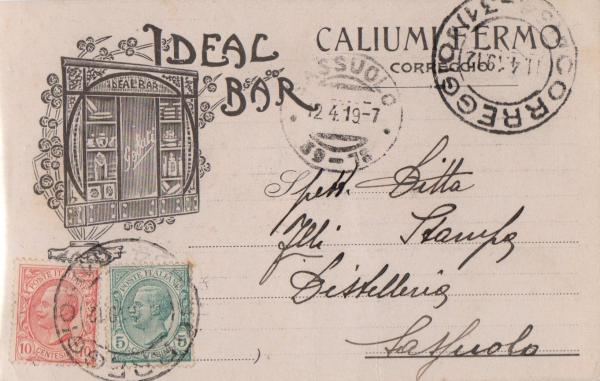 IDEAL
BAR
CALIUMI FERMO
CORREGGIO
IDEAL BAR
SASSUOLO
12.4.19-7
CORREGGIO
Spett. Ditta
Flli Stampa
Distilleria
Sassuolo
POSTE ITALIANE
10 CENTESIMI
POSTE ITALIANE
5 CENTESIMI 5
)